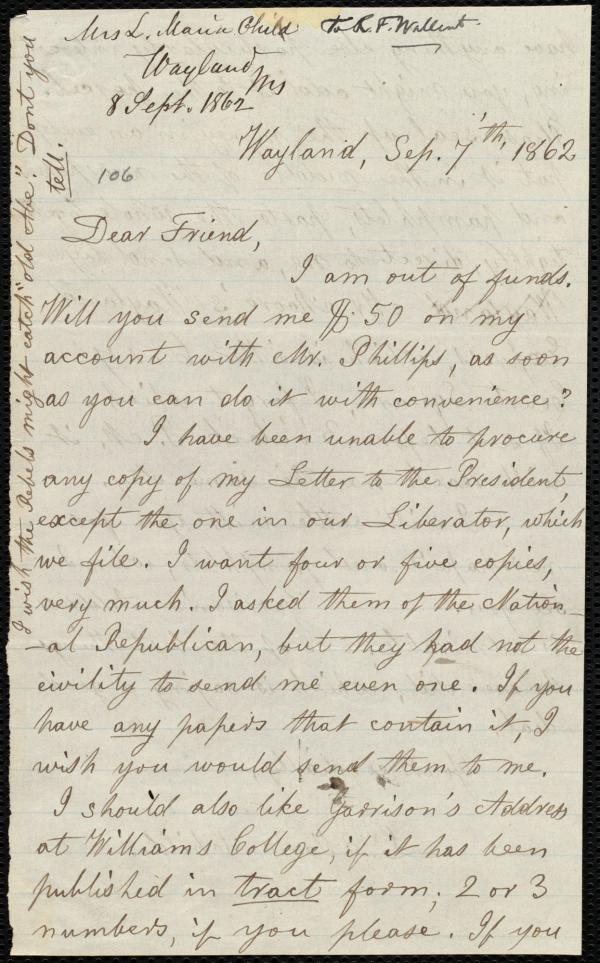 Mrs L. Maria Child
To R. F. Wallcut.
Wayland
Ms
8 Sept. 1862
Wayland, Sep. 7th, 1862
106
Dear Friend,
I am out of funds.
Will you send me $50 on my
account with Mr. Phillips, as soon
as you can do it with convenience?
I have been unable to procure
any copy of my Letter to the President,
except the one in our Liberator, which
we file. I want four or five copies,
very much. I asked them of the Nation-
-al Republican, but they had not the
civility to send me even one. If you
have any papers that contain it, I
wish you would send them to me.
I should also like Garrison's Address
at Williams College, if it has been
published in tract form; 2 or 3
numbers, if you please. If you
I wish the Rebels might catch "old Abe". Dont you
tell.